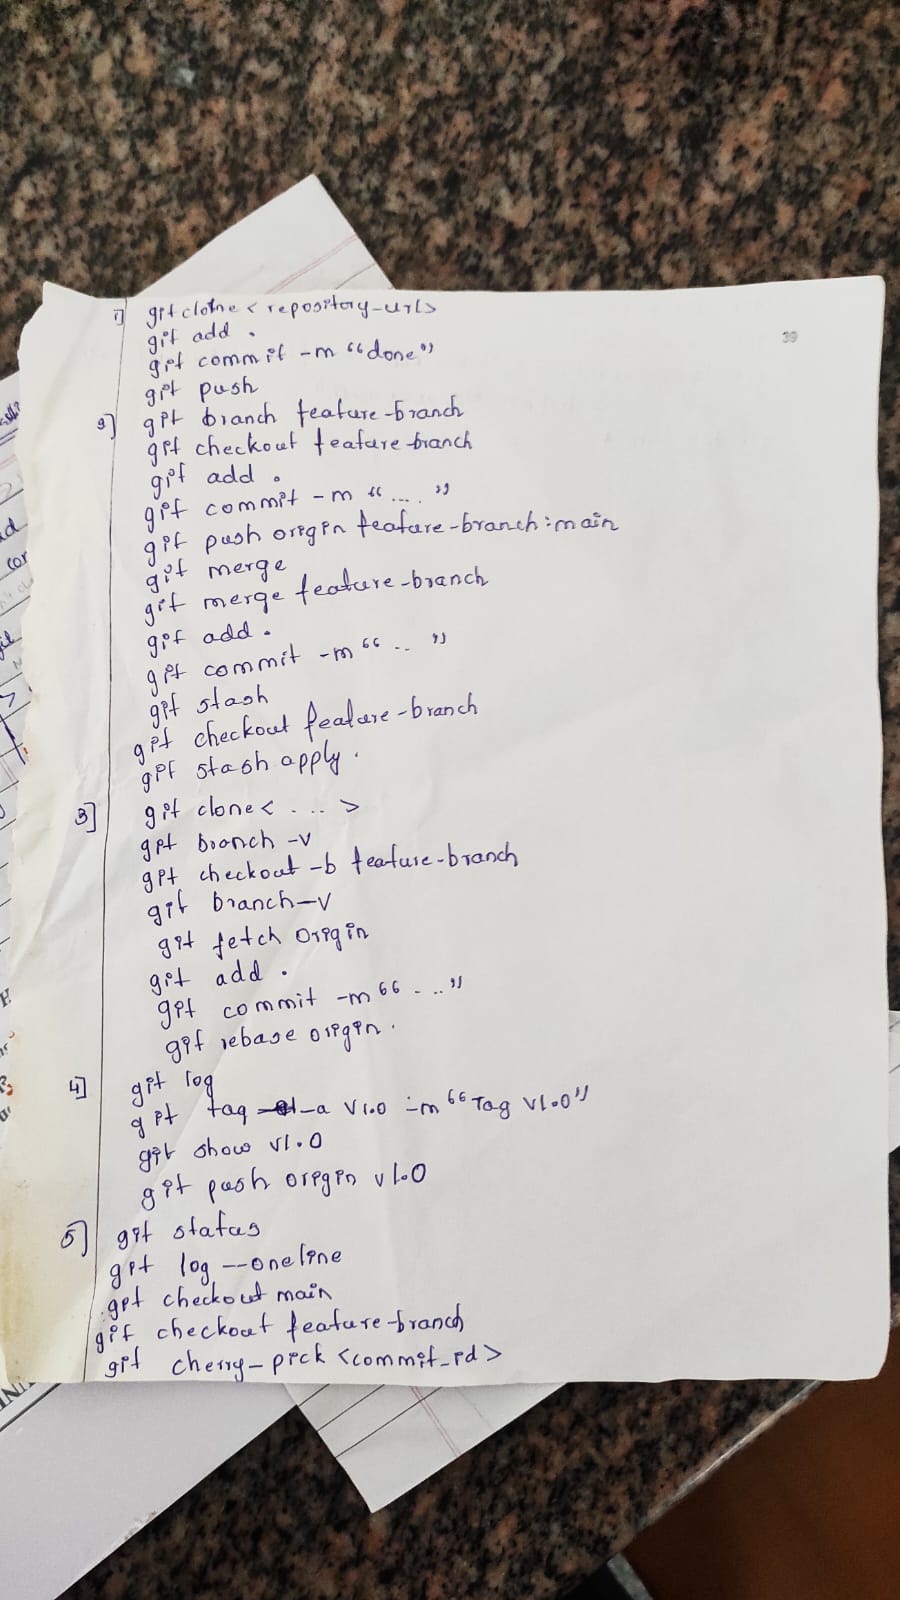 39
1] git clone <repository-url>
git add .
git commit -m "done"
git push
2] git branch feature-branch
git checkout feature-branch
git add .
git commit -m "...."
git push origin feature-branch:main
git merge
git merge feature-branch
git add .
git commit -m " .. "
git stash
git checkout feature-branch
git stash apply .
3] git clone < . ... >
git branch -v
git checkout -b feature-branch
git branch -v
git fetch origin
git add .
git commit -m " . .."
git rebase origin .
4] git log
git tag -a v1.0 -m "Tag v1.0"
git show v1.0
git push origin v1.0
5] git status
git log --oneline
git checkout main
git checkout feature-branch
git cherry-pick <commit_id>